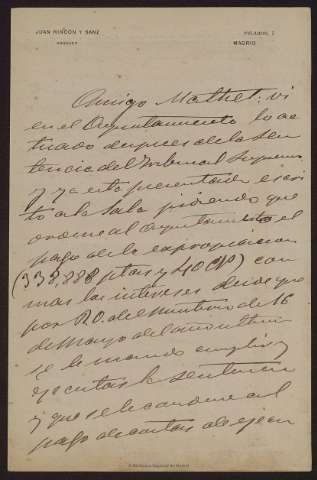 JUAN RINCÓN Y SANZ
ABOGADO
MADRID
Amigo Mathet: vi
en el Ayuntamiento lo ac
tuado despues de la Sen
tencia del Tribunal Supremo
y ya está presentado escri
to a la Sala pidiendo que
ordene al Ayuntamiento el
pago de la expropiacion
(338,888 ptas y 40 cts) con
mas los intereses desde que
por R.O. del Ministerio de 16
de Mayo del año ultimo
se le mandó cumplir y
ejecutar la sentencia
y que se le condene al
pago de costas de ejecu
© Biblioteca Regional de Madrid